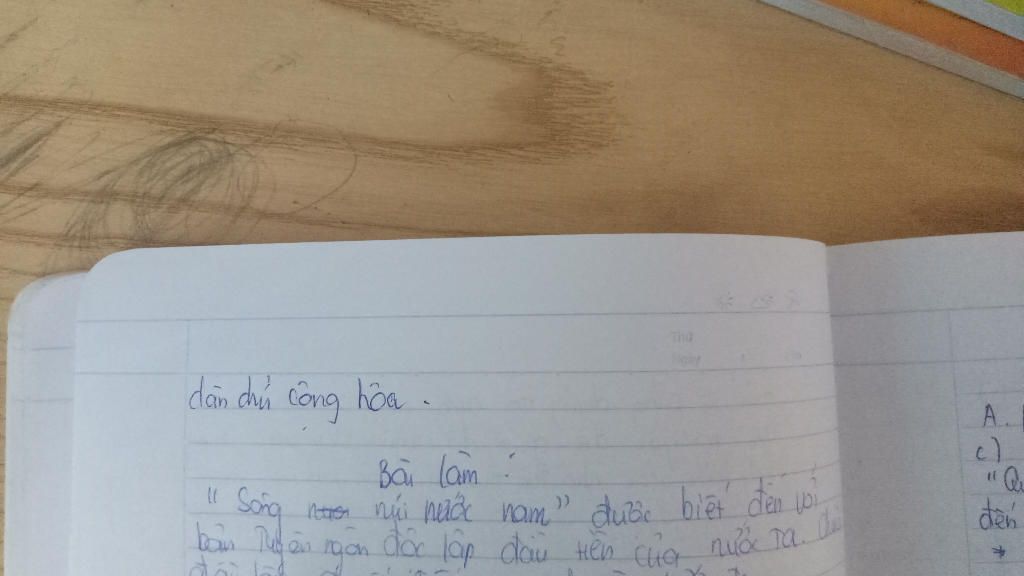 Thứ
Ngày
dân chủ cộng hòa.
Bài làm:
"Sông núi nước nam" được biết đến với
bản Tuyên ngôn độc lập đầu tiên của nước ta.
A.
c)
"Qu
đến
*